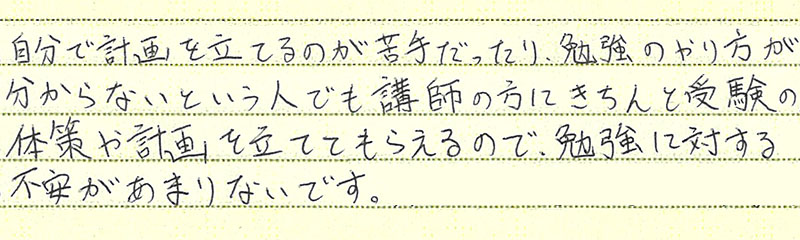 自分で計画を立てるのが苦手だったり、勉強のやり方が
分からないという人でも講師の方にきちんと受験の
体策や計画を立ててもらえるので、勉強に対する
不安があまりないです。